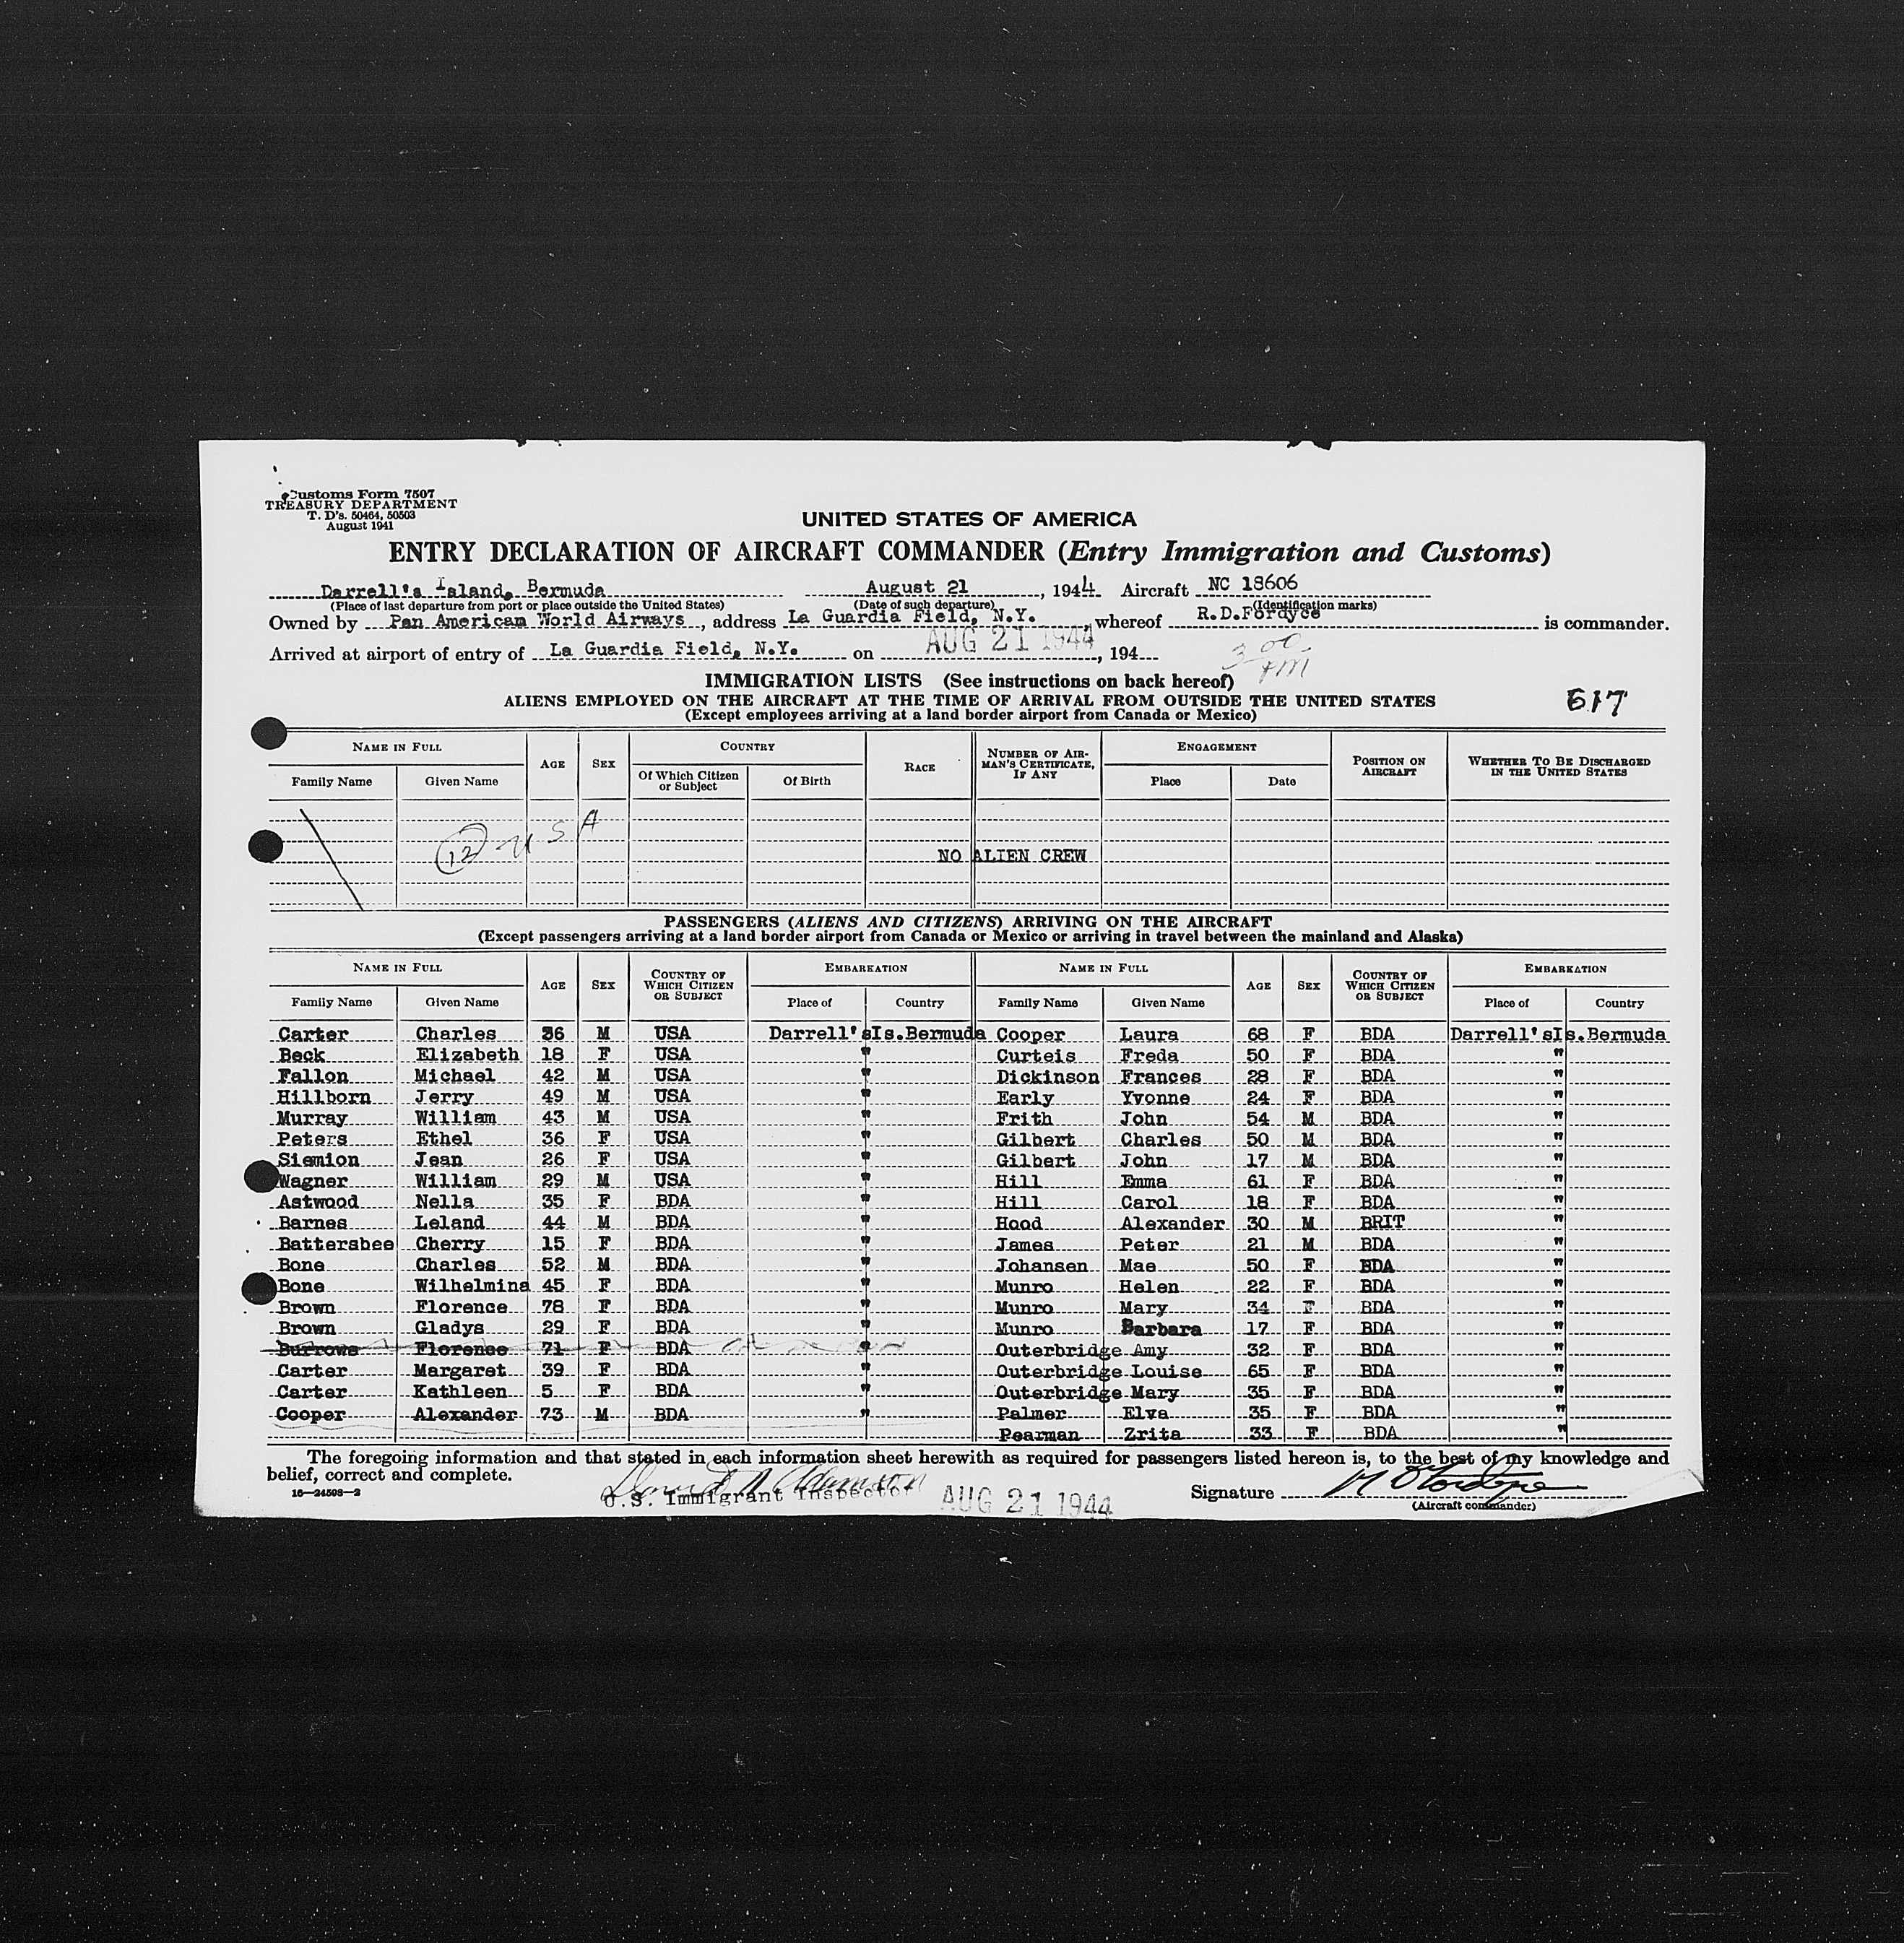 Customs Form 7507
TREASURY DEPARTMENT
T. D's. 50464, 50503
August 1941
UNITED STATES OF AMERICA
ENTRY DECLARATION OF AIRCRAFT COMMANDER (Entry Immigration and Customs)
Darrell's Island, Bermuda August 21, 1944 Aircraft NC 18606
(Place of last departure from port or place outside the United States) (Date of such departure) (Identification marks)
Owned by Pan American World Airways, address La Guardia Field, N.Y. whereof R.D.Fordyce is commander.
Arrived at airport of entry of La Guardia Field, N.Y. on AUG 21 1944, 194
3 00 PM
IMMIGRATION LISTS (See instructions on back hereof)
ALIENS EMPLOYED ON THE AIRCRAFT AT THE TIME OF ARRIVAL FROM OUTSIDE THE UNITED STATES
617
(Except employees arriving at a land border airport from Canada or Mexico)
NAME IN FULL AGE SEX COUNTRY RACE NUMBER OF AIRMAN'S CERTIFICATE, IF ANY ENGAGEMENT POSITION ON AIRCRAFT WHETHER TO BE DISCHARGED IN THE UNITED STATES
Family Name Given Name Of Which Citizen or Subject Of Birth Place Date
12 USA
NO ALIEN CREW
PASSENGERS (ALIENS AND CITIZENS) ARRIVING ON THE AIRCRAFT
(Except passengers arriving at a land border airport from Canada or Mexico or arriving in travel between the mainland and Alaska)
NAME IN FULL AGE SEX COUNTRY OF WHICH CITIZEN OR SUBJECT EMBARKATION NAME IN FULL AGE SEX COUNTRY OF WHICH CITIZEN OR SUBJECT EMBARKATION
Family Name Given Name Place of Country Family Name Given Name Place of Country
Carter Charles 36 M USA Darrell'sIs.Bermuda Cooper Laura 68 F BDA Darrell'sIs.Bermuda
Beck Elizabeth 18 F USA " Curteis Freda 50 F BDA "
Fallon Michael 42 M USA " Dickinson Frances 28 F BDA "
Hillborn Jerry 49 M USA " Early Yvonne 24 F BDA "
Murray William 43 M USA " Frith John 54 M BDA "
Peters Ethel 36 F USA " Gilbert Charles 50 M BDA "
Siemion Jean 26 F USA " Gilbert John 17 M BDA "
Wagner William 29 M USA " Hill Emma 61 F BDA "
Astwood Nella 35 F BDA " Hill Carol 18 F BDA "
Barnes Leland 44 M BDA " Hood Alexander 30 M BRIT "
Battersbee Cherry 15 F BDA " James Peter 21 M BDA "
Bone Charles 52 M BDA " Johansen Mae 50 F BDA "
Bone Wilhelmina 45 F BDA " Munro Helen 22 F BDA "
Brown Florence 78 F BDA " Munro Mary 34 F BDA "
Brown Gladys 29 F BDA " Munro Barbara 17 F BDA "
Burrows Florence 71 F BDA " Outerbridge Amy 32 F BDA "
Carter Margaret 39 F BDA " Outerbridge Louise 65 F BDA "
Carter Kathleen 5 F BDA " Outerbridge Mary 35 F BDA "
Cooper Alexander 73 M BDA " Palmer Elva 35 F BDA "
Pearman Zrita 33 F BDA "
The foregoing information and that stated in each information sheet herewith as required for passengers listed hereon is, to the best of my knowledge and
belief, correct and complete.
16—24508—2
U.S. Immigrant Inspector AUG 21 1944 Signature
(Aircraft commander)